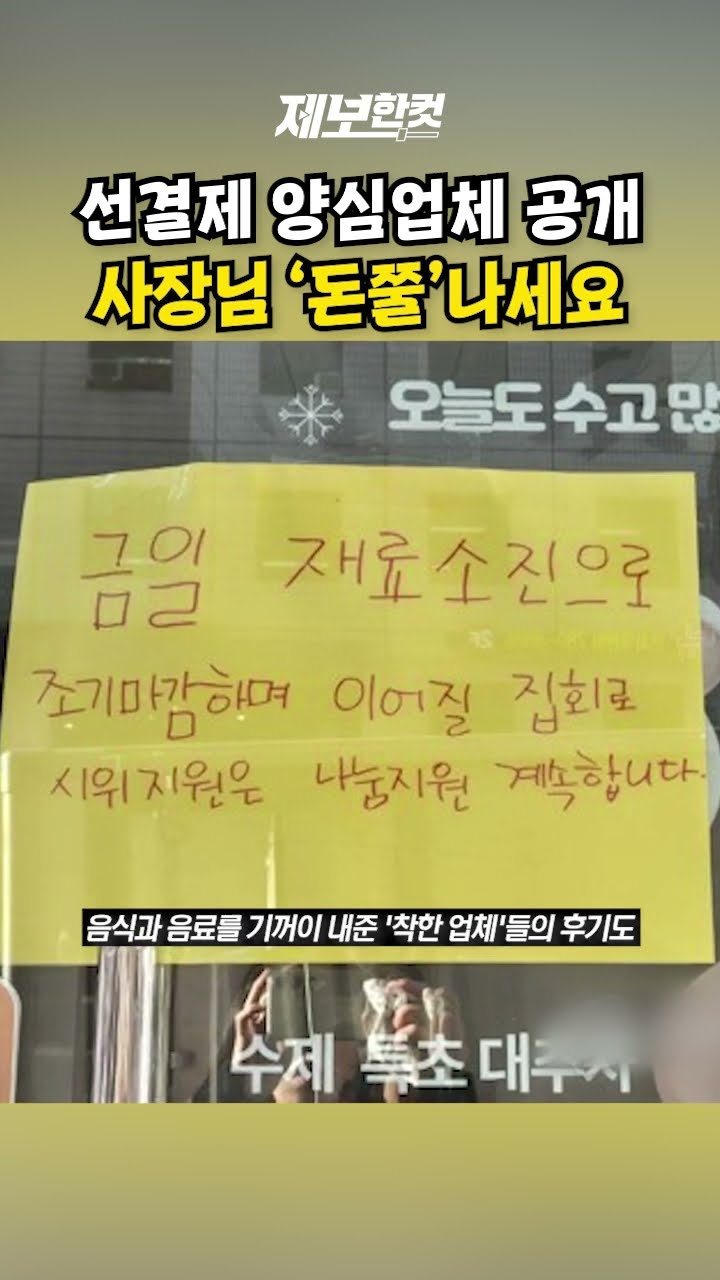 제보한컷
선결제 양심업체 공개
사장님 ‘돈쭐’나세요
오늘도 수고 많
금일 재료소진으로
조기마감하며 이어질 집회로
시위지원은 나눔지원 계속합니다.
음식과 음료를 기꺼이 내준 '착한 업체'들의 후기도
수제 특초 대추차